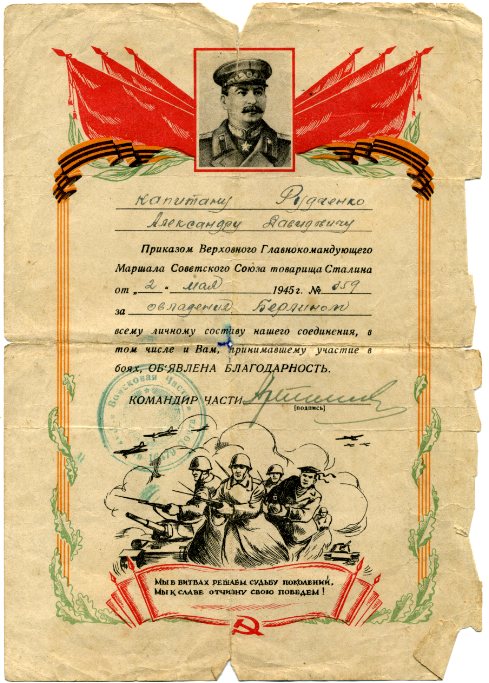 Капитану Рудченко
Александру Давидовичу
Приказом Верховного Главнокомандующего
Маршала Советского Союза товарища Сталина
от „2" мая 1945 г. № 359
за овладение Берлином
всему личному составу нашего соединения, в
том числе и Вам, принимавшему участие в
боях, ОБ'ЯВЛЕНА БЛАГОДАРНОСТЬ.
КОМАНДИР ЧАСТИ
(подпись)
Войсковая Часть
МЫ В БИТВАХ РЕШАЕМ СУДЬБУ ПОКОЛЕНИЙ,
МЫ К СЛАВЕ ОТЧИЗНУ СВОЮ ПОВЕДЕМ!